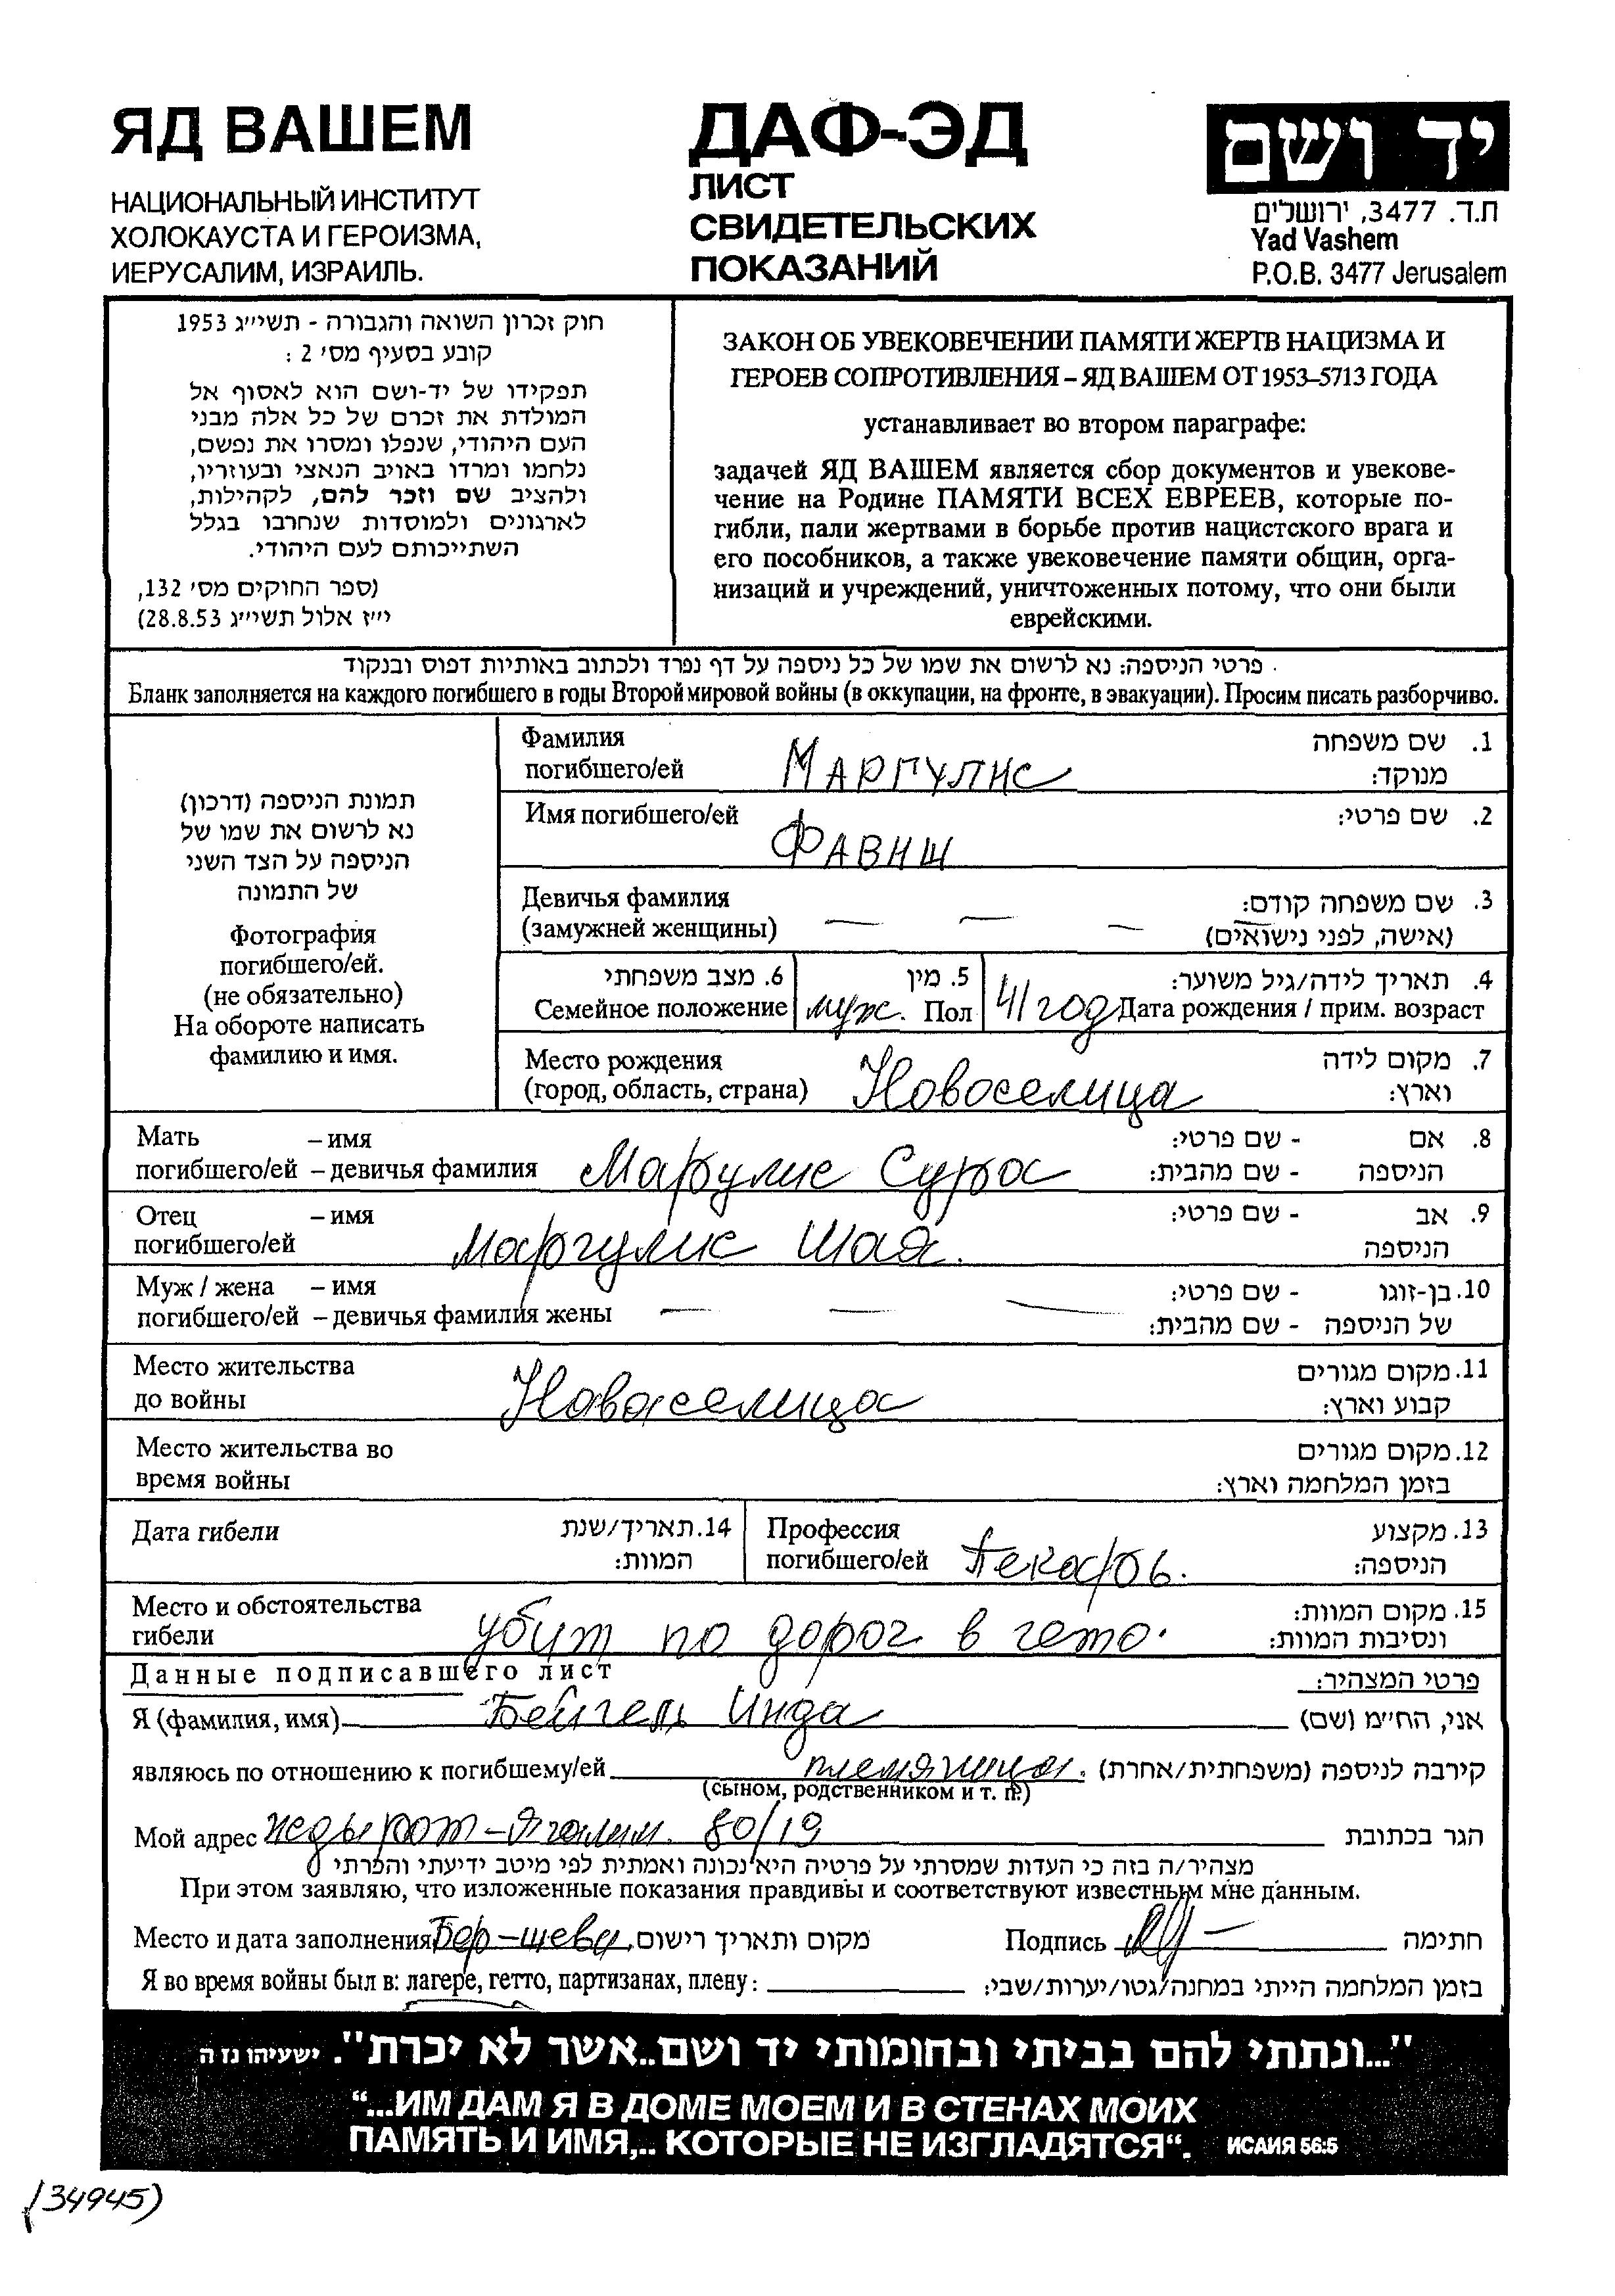 ЯД ВАШЕМ
НАЦИОНАЛЬНЫЙ ИНСТИТУТ
ХОЛОКАУСТА И ГЕРОИЗМА,
ИЕРУСАЛИМ, ИЗРАИЛЬ.
ДАФ-ЭД
ЛИСТ
СВИДЕТЕЛЬСКИХ
ПОКАЗАНИЙ
יד ושם
ת.ד. 3477, ירושלים
Yad Vashem
P.O.B. 3477 Jerusalem
חוק זכרון השואה והגבורה - תשי״ג 1953
קובע בסעיף מס׳ 2 :
תפקידו של יד-ושם הוא לאסוף אל
המולדת את זכרם של כל אלה מבני
העם היהודי, שנפלו ומסרו את נפשם,
נלחמו ומרדו באויב הנאצי ובעוזריו,
ולהציב שם וזכר להם, לקהילות,
לארגונים ולמוסדות שנחרבו בגלל
השתייכותם לעם היהודי.
(ספר החוקים מס׳ 132,
י״ז אלול תשי״ג 28.8.53)
ЗАКОН ОБ УВЕКОВЕЧЕНИИ ПАМЯТИ ЖЕРТВ НАЦИЗМА И
ГЕРОЕВ СОПРОТИВЛЕНИЯ – ЯД ВАШЕМ ОТ 1953–5713 ГОДА
устанавливает во втором параграфе:
задачей ЯД ВАШЕМ является сбор документов и увекове-
чение на Родине ПАМЯТИ ВСЕХ ЕВРЕЕВ, которые по-
гибли, пали жертвами в борьбе против нацистского врага и
его пособников, а также увековечение памяти общин, орга-
низаций и учреждений, уничтоженных потому, что они были
еврейскими.
פרטי הניספה: נא לרשום את שמו של כל ניספה על דף נפרד ולכתוב באותיות דפוס ובנקוד
Бланк заполняется на каждого погибшего в годы Второй мировой войны (в оккупации, на фронте, в эвакуации). Просим писать разборчиво.
תמונת הניספה (דרכון)
נא לרשום את שמו של
הניספה על הצד השני
של התמונה
Фотография
погибшего/ей.
(не обязательно)
На обороте написать
фамилию и имя.
Фамилия 1. שם משפחה
погибшего/ей Маргулис מנוקד:
Имя погибшего/ей 2. שם פרטי:
Фавиш
Девичья фамилия 3. שם משפחה קודם:
(замужней женщины) — — — (אישה, לפני נישואים)
6. מצב משפחתי 5. מין 4. תאריך לידה/גיל משוער:
Семейное положение муж. Пол 41 год Дата рождения / прим. возраст
Место рождения 7. מקום לידה
(город, область, страна) Новоселица וארץ:
Мать – имя 8. אם - שם פרטי:
погибшего/ей – девичья фамилия Маргулис Сура הניספה - שם מהבית:
Отец – имя 9. אב - שם פרטי:
погибшего/ей Маргулис Шая. הניספה
Муж / жена – имя 10. בן-זוגו - שם פרטי:
погибшего/ей – девичья фамилия жены — — — של הניספה - שם מהבית:
Место жительства 11. מקום מגורים
до войны Новоселица קבוע וארץ:
Место жительства во 12. מקום מגורים
время войны בזמן המלחמה וארץ:
Дата гибели 14. תאריך/שנת המוות:
Профессия 13. מקצוע
погибшего/ей Пекарь. הניספה:
Место и обстоятельства 15. מקום המוות:
гибели убит по дорог в гето. ונסיבות המוות:
Данные подписавшего лист פרטי המצהיר:
Я (фамилия, имя) Бейгель Инда אני, הח״מ (שם)
являюсь по отношению к погибшему/ей племяница. קירבה לניספה (משפחתית/אחרת)
(сыном, родственником и т. п.)
Мой адрес 80/19 הגר בכתובת
מצהיר/ה בזה כי העדות שמסרתי על פרטיה היא נכונה ואמתית לפי מיטב ידיעתי והכרתי
При этом заявляю, что изложенные показания правдивы и соответствуют известным мне данным.
Место и дата заполнения Бер-шева, מקום ותאריך רישום Подпись חתימה
Я во время войны был в: лагере, гетто, партизанах, плену: בזמן המלחמה הייתי במחנה/גטו/יערות/שבי:
"...ונתתי להם בביתי ובחומותי יד ושם..אשר לא יכרת". ישעיהו נו ה
“...ИМ ДАМ Я В ДОМЕ МОЕМ И В СТЕНАХ МОИХ
ПАМЯТЬ И ИМЯ,.. КОТОРЫЕ НЕ ИЗГЛАДЯТСЯ“. ИСАИЯ 56:5
(34945)